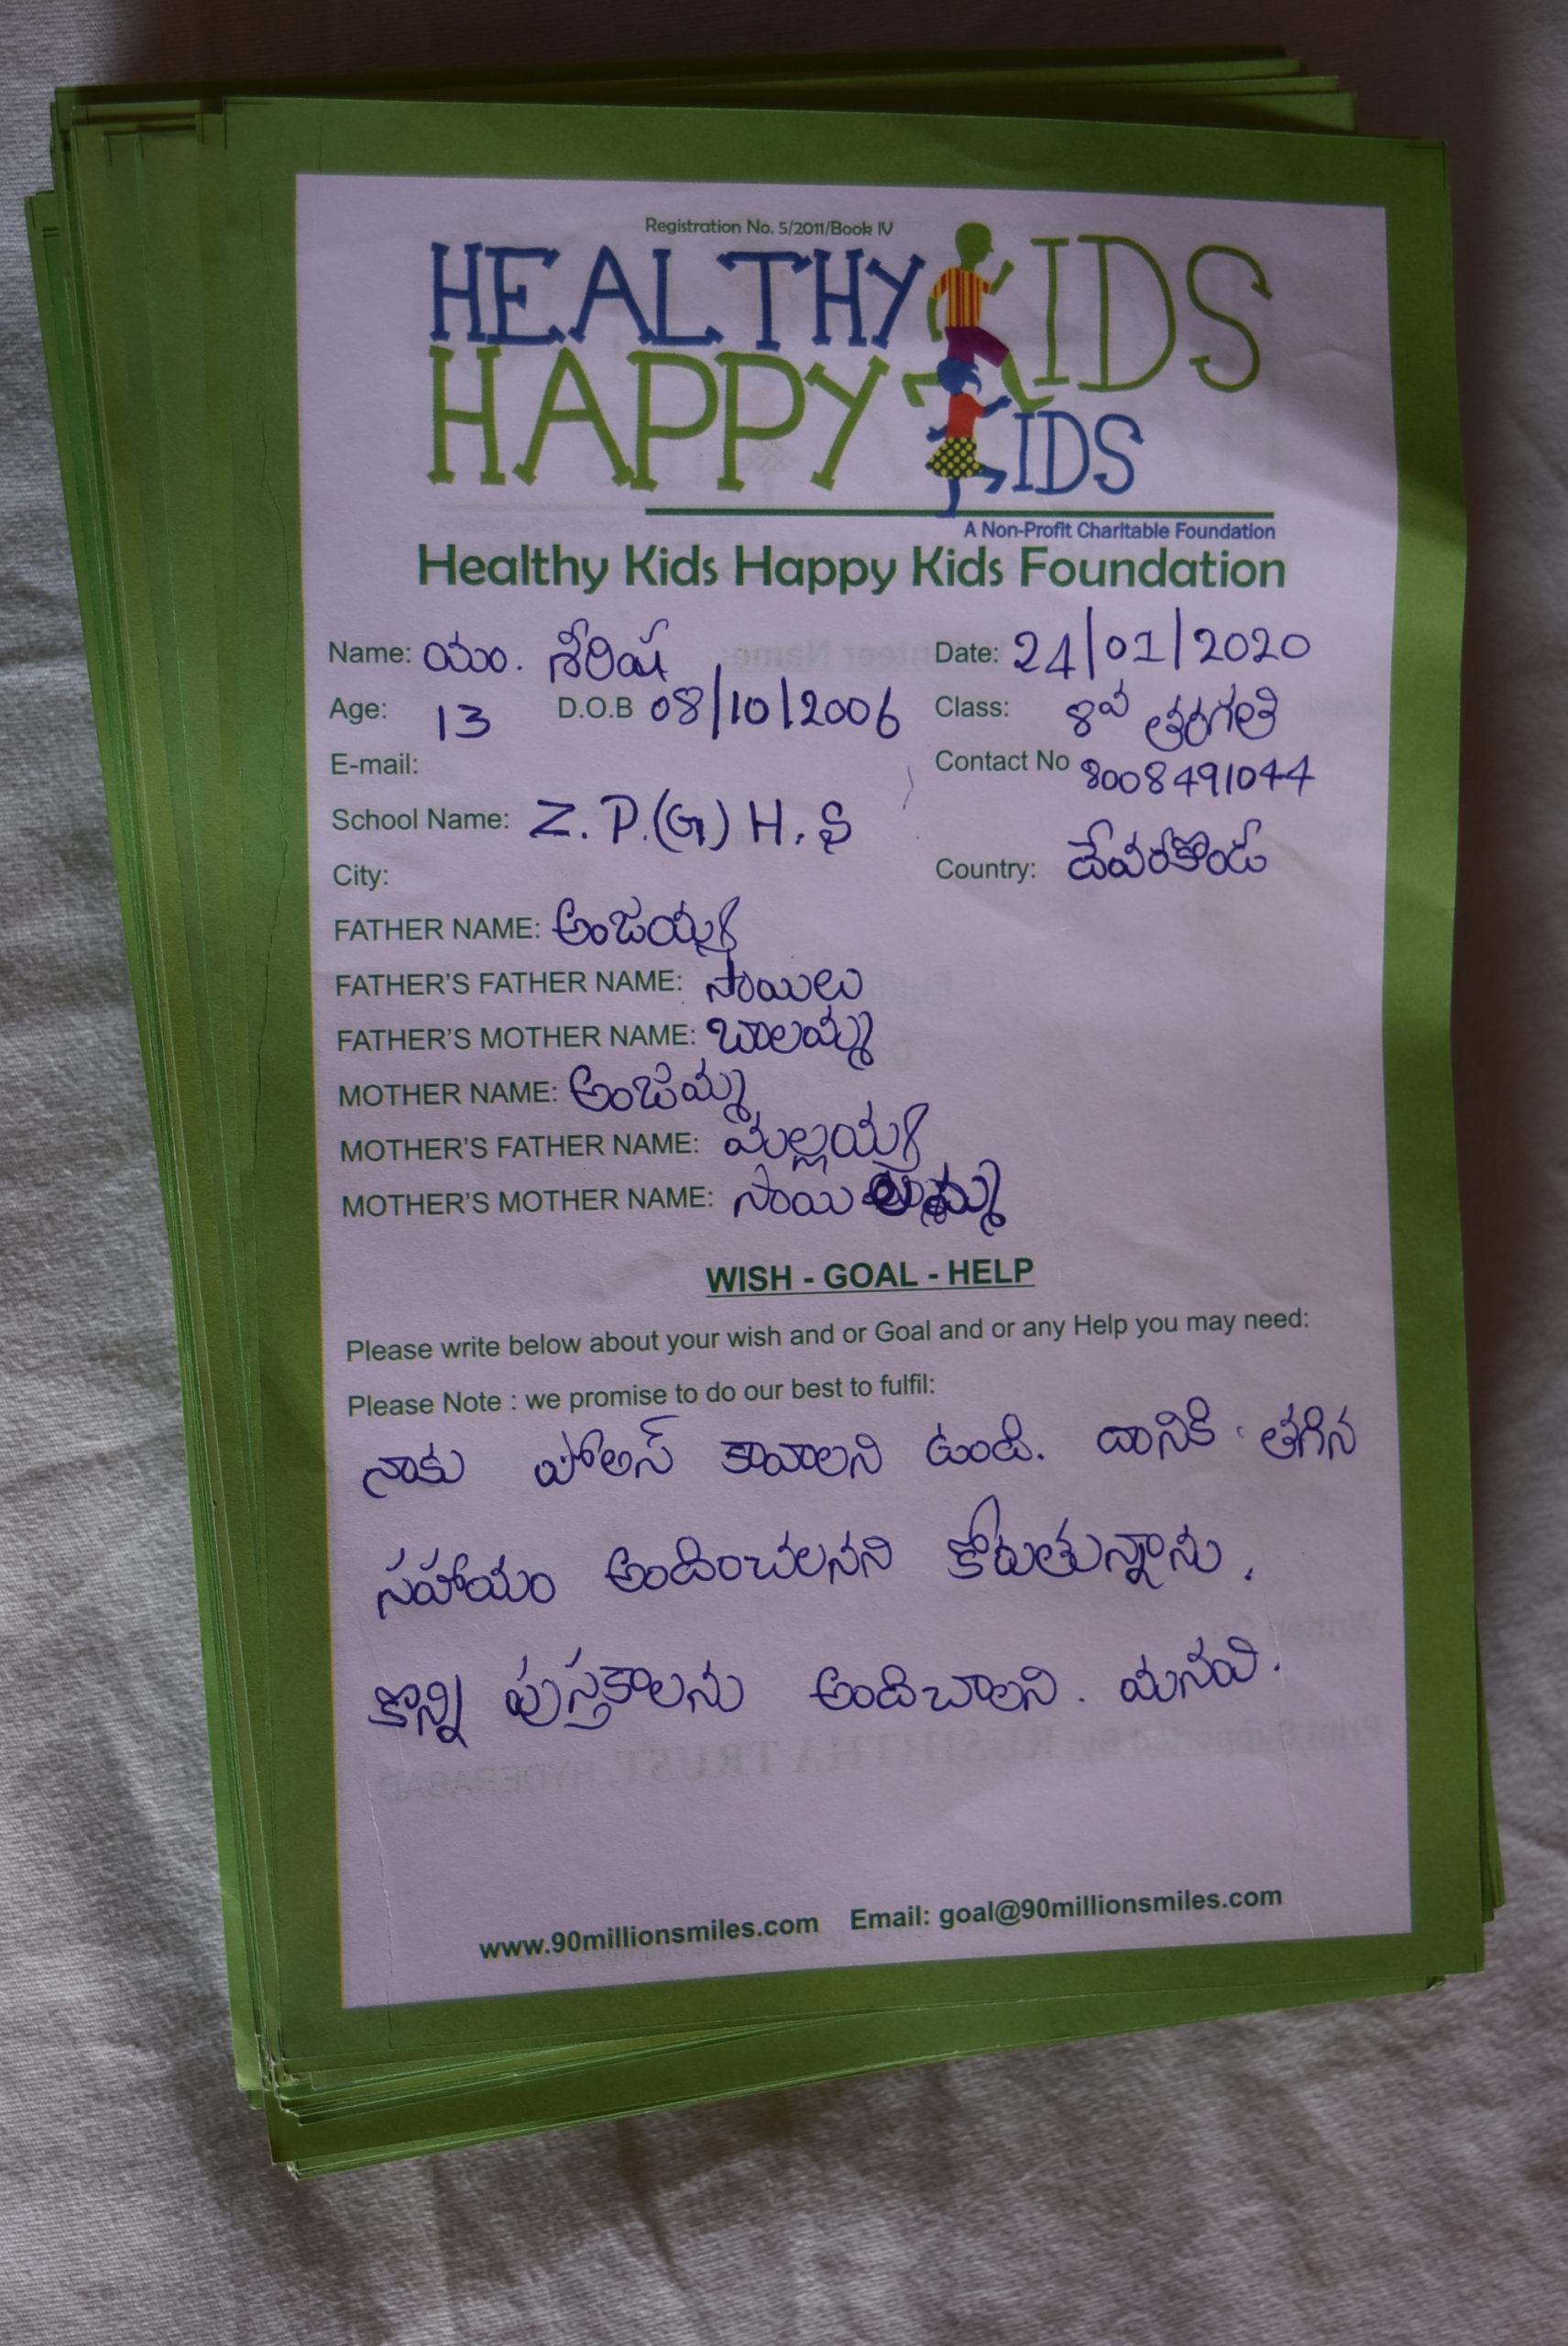 Registration No. 5/2011/Book IV
HEALTHY KIDS
HAPPY KIDS
A Non-Profit Charitable Foundation
Healthy Kids Happy Kids Foundation
Name: యం. శిరిష Date: 24/01/2020
Age: 13 D.O.B 08/10/2006 Class: 8వ తరగతి
E-mail: Contact No 8008491044
School Name: Z. P.(G) H. S
City: Country: దేవరకొండ
FATHER NAME: అంజయ్య
FATHER'S FATHER NAME: సాయిలు
FATHER'S MOTHER NAME: బాలమ్మ
MOTHER NAME: అంజమ్మ
MOTHER'S FATHER NAME: మల్లయ్య
MOTHER'S MOTHER NAME: సాయి
WISH - GOAL - HELP
Please write below about your wish and or Goal and or any Help you may need:
Please Note : we promise to do our best to fulfil:
నాకు పోలిస్ కావాలని ఉంది. దానికి తగిన
సహాయం అందించలనని కోరుతున్నాను.
కొన్ని పుస్తకాలను అందిచాలని. మనవి.
www.90millionsmiles.com Email: goal@90millionsmiles.com